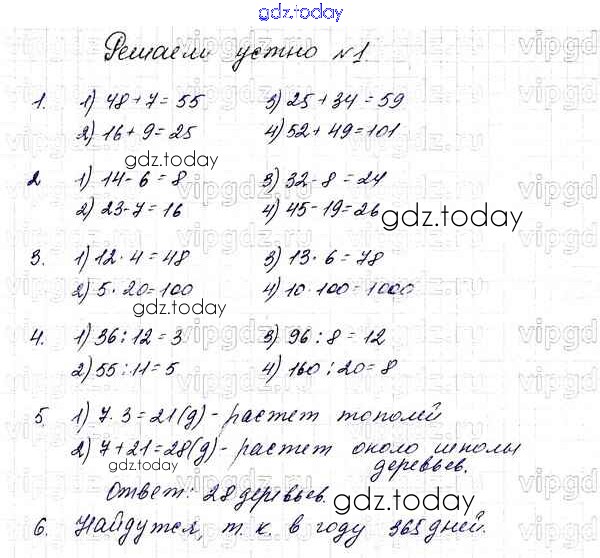 gdz.today
Решаем устно №1
1. 1) 48+7=55 3) 25+34=59
2) 16+9=25 4) 52+49=101
gdz.today
2 1) 14-6=8 3) 32-8=24
2) 23-7=16 4) 45-19=26
gdz.today
3. 1) 12·4=48 3) 13·6=78
2) 5·20=100 4) 10·100=1000
gdz.today
4. 1) 36:12=3 3) 96:8=12
2) 55:11=5 4) 160:20=8
5. 1) 7·3=21(д)-растет тополей
2) 7+21=28(д)-растет около школы
деревьев.
gdz.today
Ответ: 28 деревьев.
gdz.today
6. Найдутся, т.к. в году 365 дней.